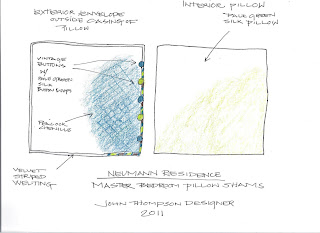 EXTERIOR ENVELOPE
OUTSIDE CASING OF
PILLOW
INTERIOR PILLOW
PALE GREEN
SILK PILLOW
VINTAGE
BUTTONS
W/
PALE GREEN
SILK
BUTTON LOOPS
PEACOCK
CHENILLE
VELVET
STRIPED
WELTING
NEUMANN RESIDENCE
MASTER BEDROOM PILLOW SHAMS
JOHN THOMPSON DESIGNER
2011